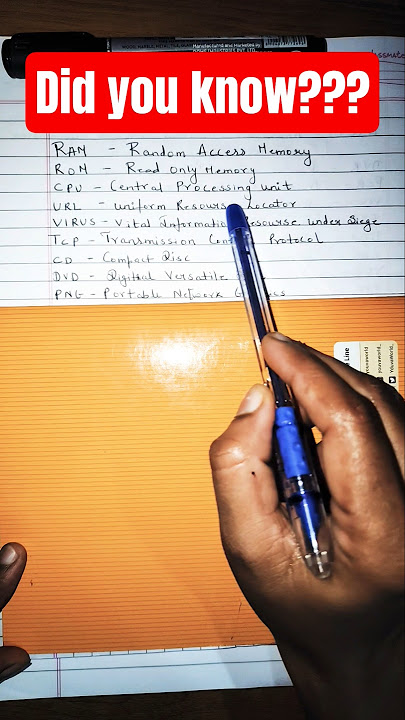 Manufactured and Marketed by
classmate
Did you know???
RAM - Random Access Memory
ROM - Read Only Memory
CPU - Central Processing unit
URL - uniform Resourse Locator
VIRUS - Vital Information Resourse under Siege
TCP - Transmission Con Protocol
CD - Compact Disc
DVD - Digital Versatile
PNG - Portable Network G ics
Line